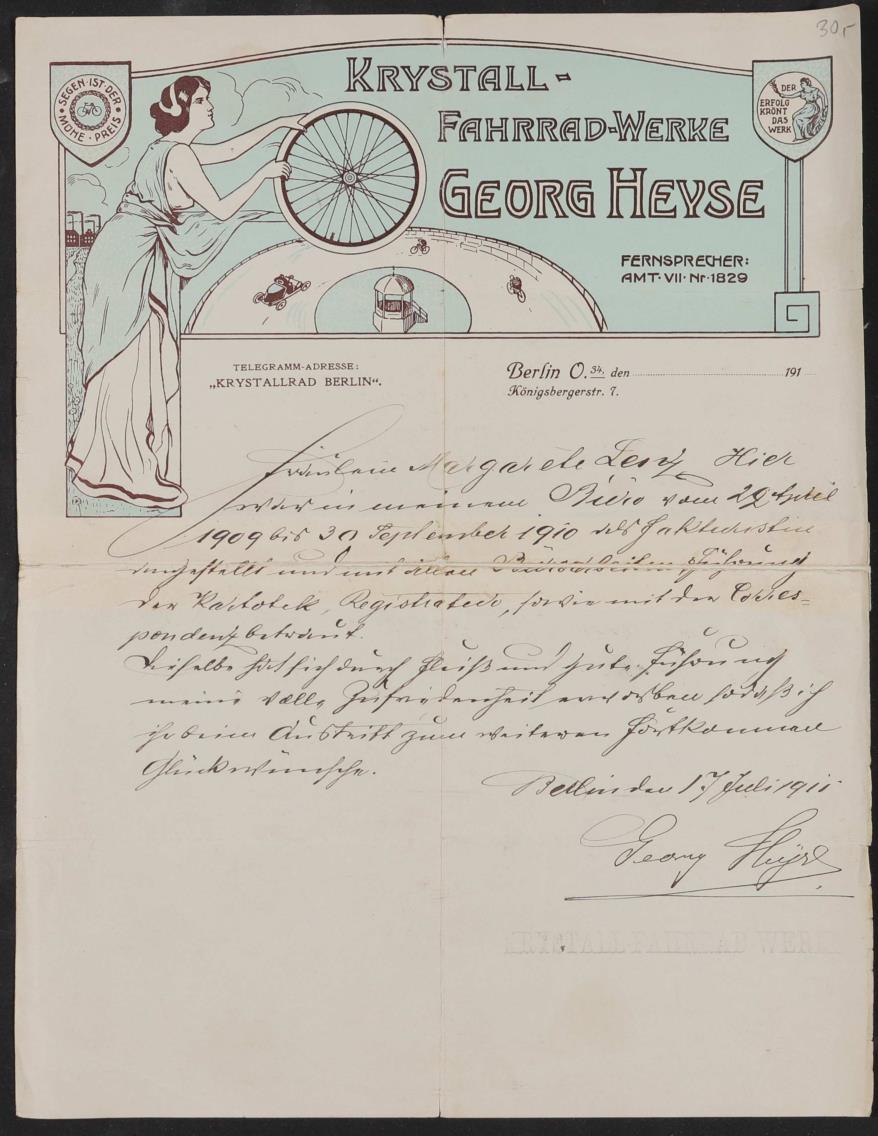 30,-
SEGEN·IST·DER
MÜHE·PREIS
DER
ERFOLG
KRÖNT
DAS
WERK
KRYSTALL-
FAHRRAD-WERKE
GEORG HEYSE
FERNSPRECHER:
AMT·VII·Nr·1829
TELEGRAMM-ADRESSE:
„KRYSTALLRAD BERLIN“.
Berlin O. 34. den 191
Königsbergerstr. 7.
Fräulein Margarete Lenz Hier
war in meinem Büro vom 29 April
1909 bis 30 September 1910 als Fakturistin
angestellt und mit allen Büroarbeiten, Führung
der Kartotek, Registratur, sowie mit der Corres=
pondenz betraut.
Dieselbe hat sich durch Fleiß und gute Führung
meine volle Zufriedenheit erworben sodaß ich
ihr beim Austritt zum weiteren Fortkommen
Glück wünsche.
Berlin den 17 Juli 1911
Georg Heyse
KRYSTALL-FAHRRAD WERK